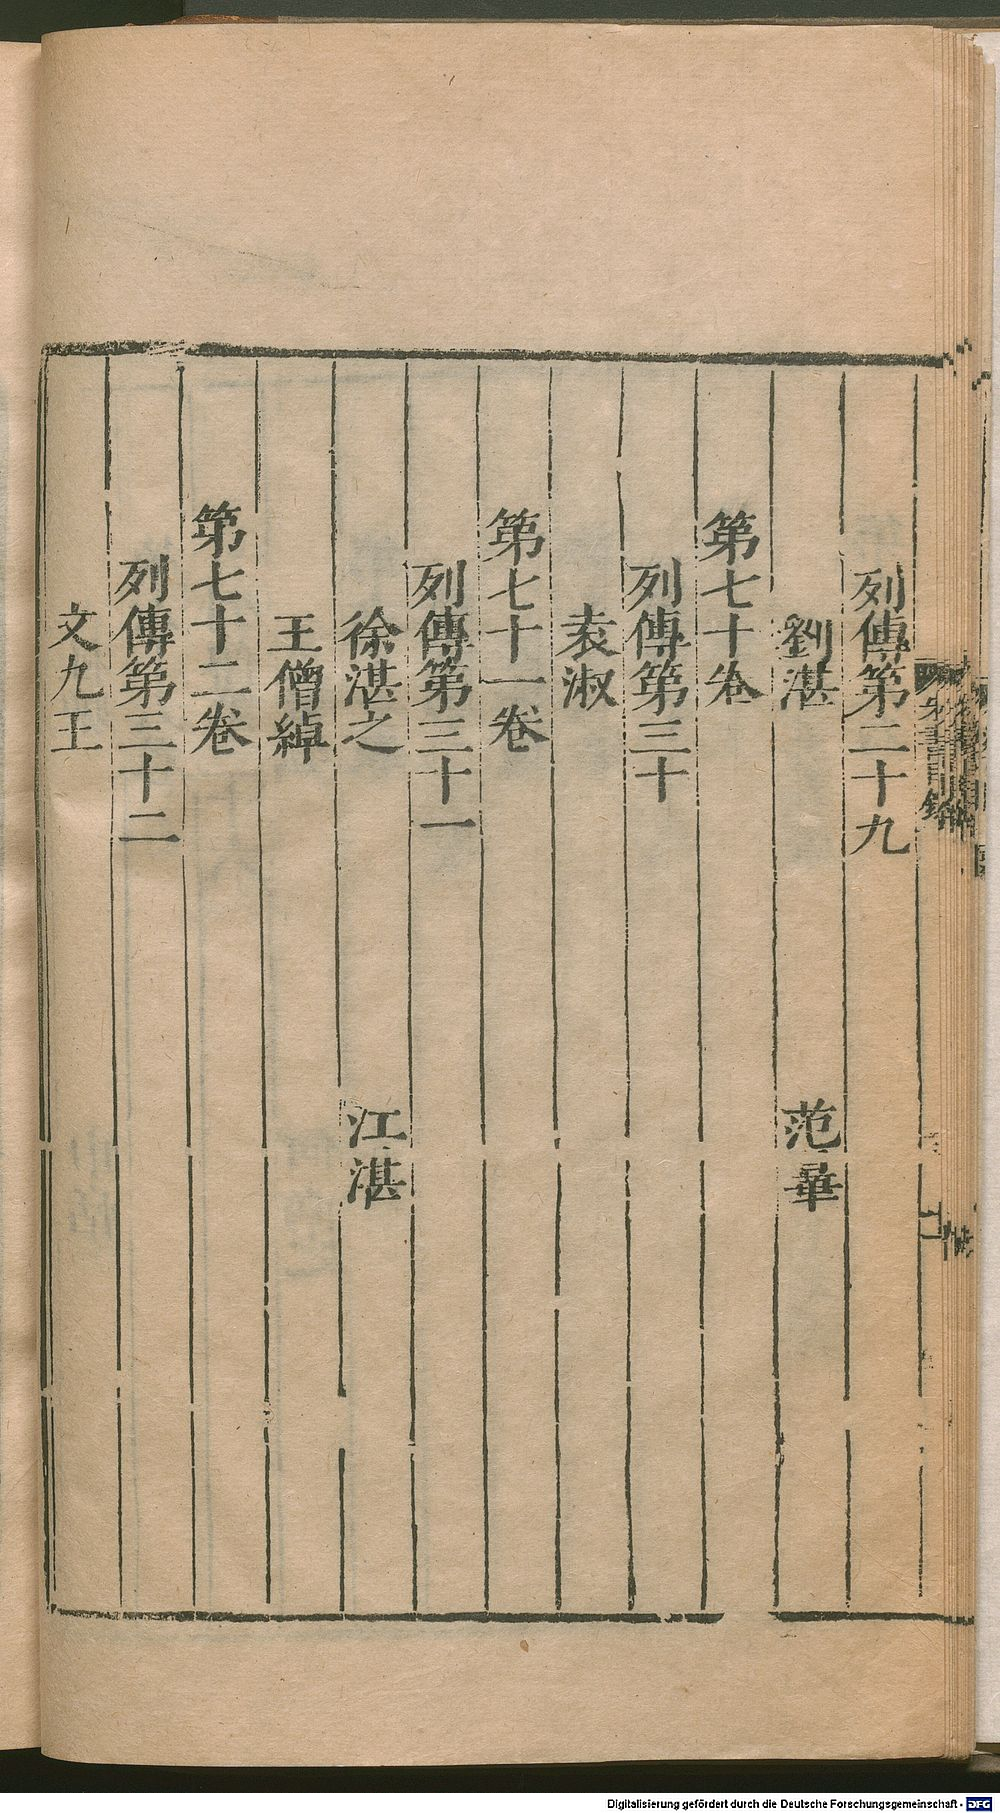 列傳第二十九
劉湛 范曄
第七十卷
列傳第三十
袁淑
第七十一卷
列傳第三十一
徐湛之 江湛
王僧綽
第七十二卷
列傳第三十二
文九王
Digitalisierung gefördert durch die Deutsche Forschungsgemeinschaft - DFG